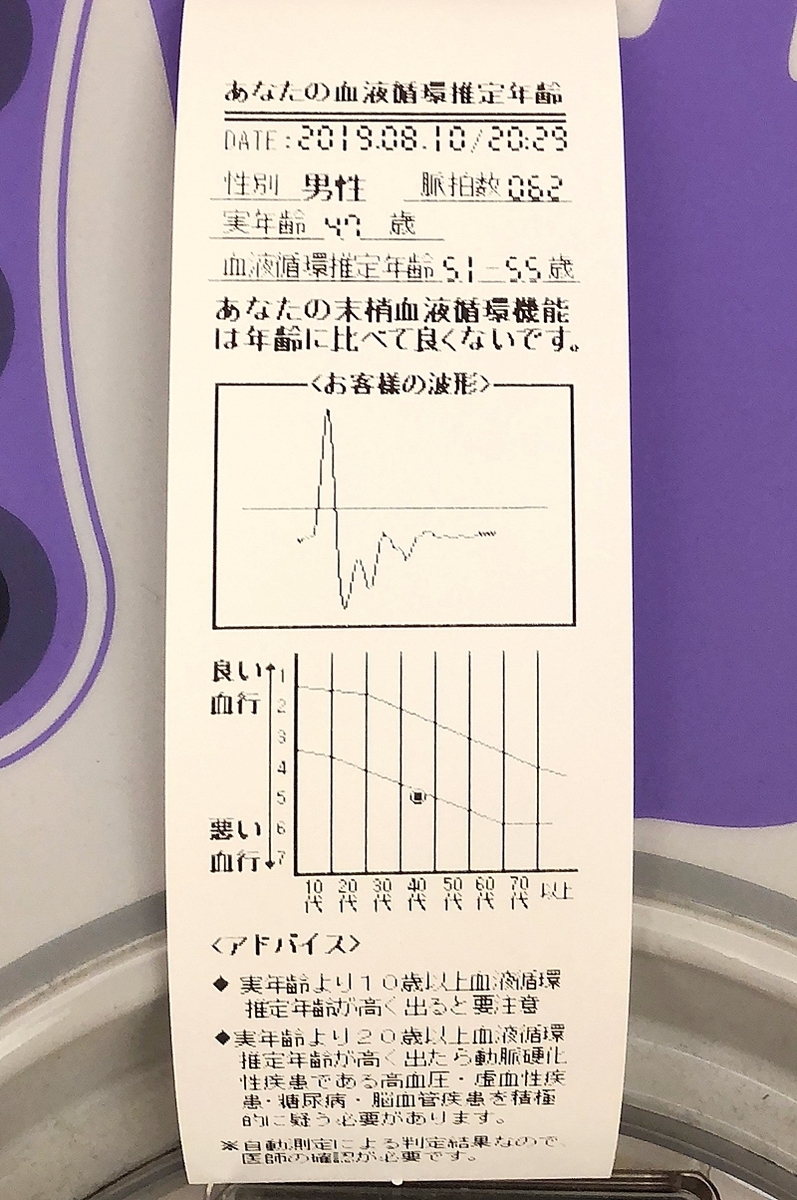 あなたの血液循環推定年齢
DATE:2019.08.10/20:29
性別 男性 脈拍数 062
実年齢 47 歳
血液循環推定年齢 51-55 歳
あなたの末梢血液循環機能
は年齢に比べて良くないです。
<お客様の波形>
良い
血行
1
2
3
4
5
6
7
悪い
血行
10代 20代 30代 40代 50代 60代 70代 以上
<アドバイス>
◆ 実年齢より10歳以上血液循環
推定年齢が高く出ると要注意
◆実年齢より20歳以上血液循環
推定年齢が高く出たら動脈硬化
性疾患である高血圧・虚血性疾
患・糖尿病・脳血管疾患を積極
的に疑う必要があります。
※自動測定による判定結果なので、
医師の確認が必要です。